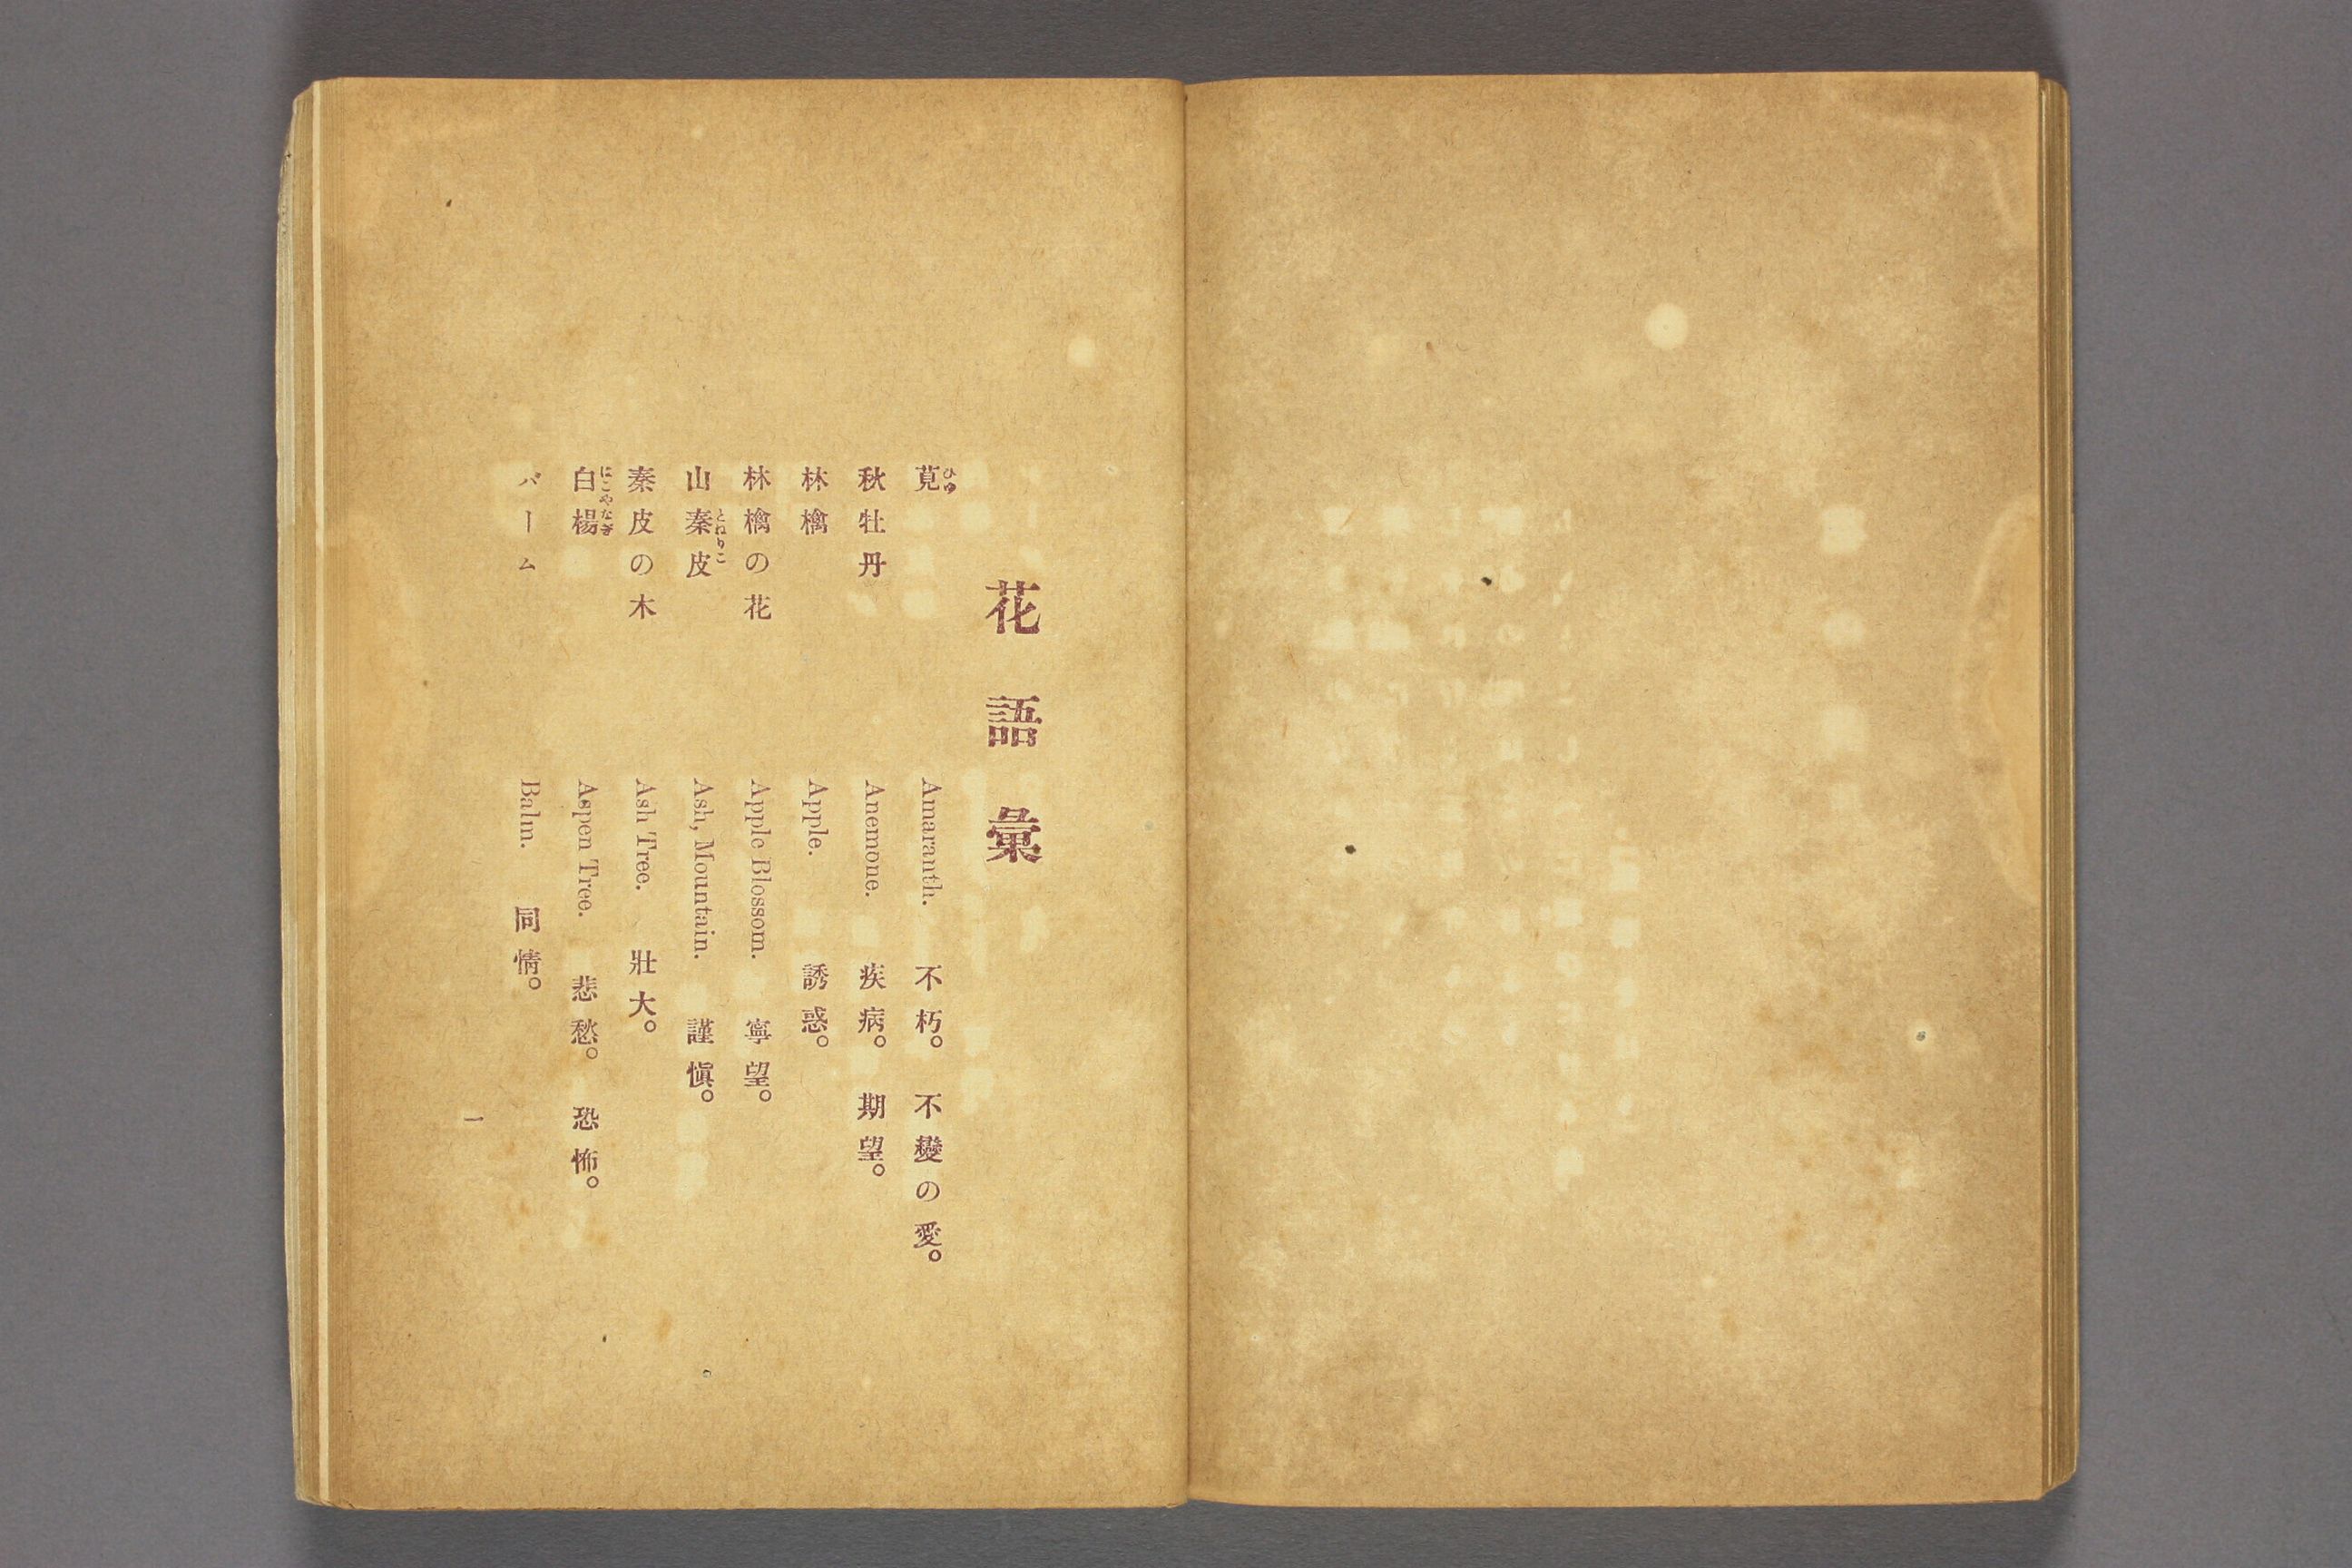 花語彙
莧 Amaranth. 不朽。 不變の愛。
ひゆ
秋牡丹 Anemone. 疾病。 期望。
林檎 Apple. 誘惑。
林檎の花 Apple Blossom. 寧望。
山秦皮 Ash, Mountain. 謹愼。
とねりこ
秦皮の木 Ash Tree. 壯大。
白楊 Aspen Tree. 悲愁。 恐怖。
はこやなぎ
バーム Balm. 同情。
一